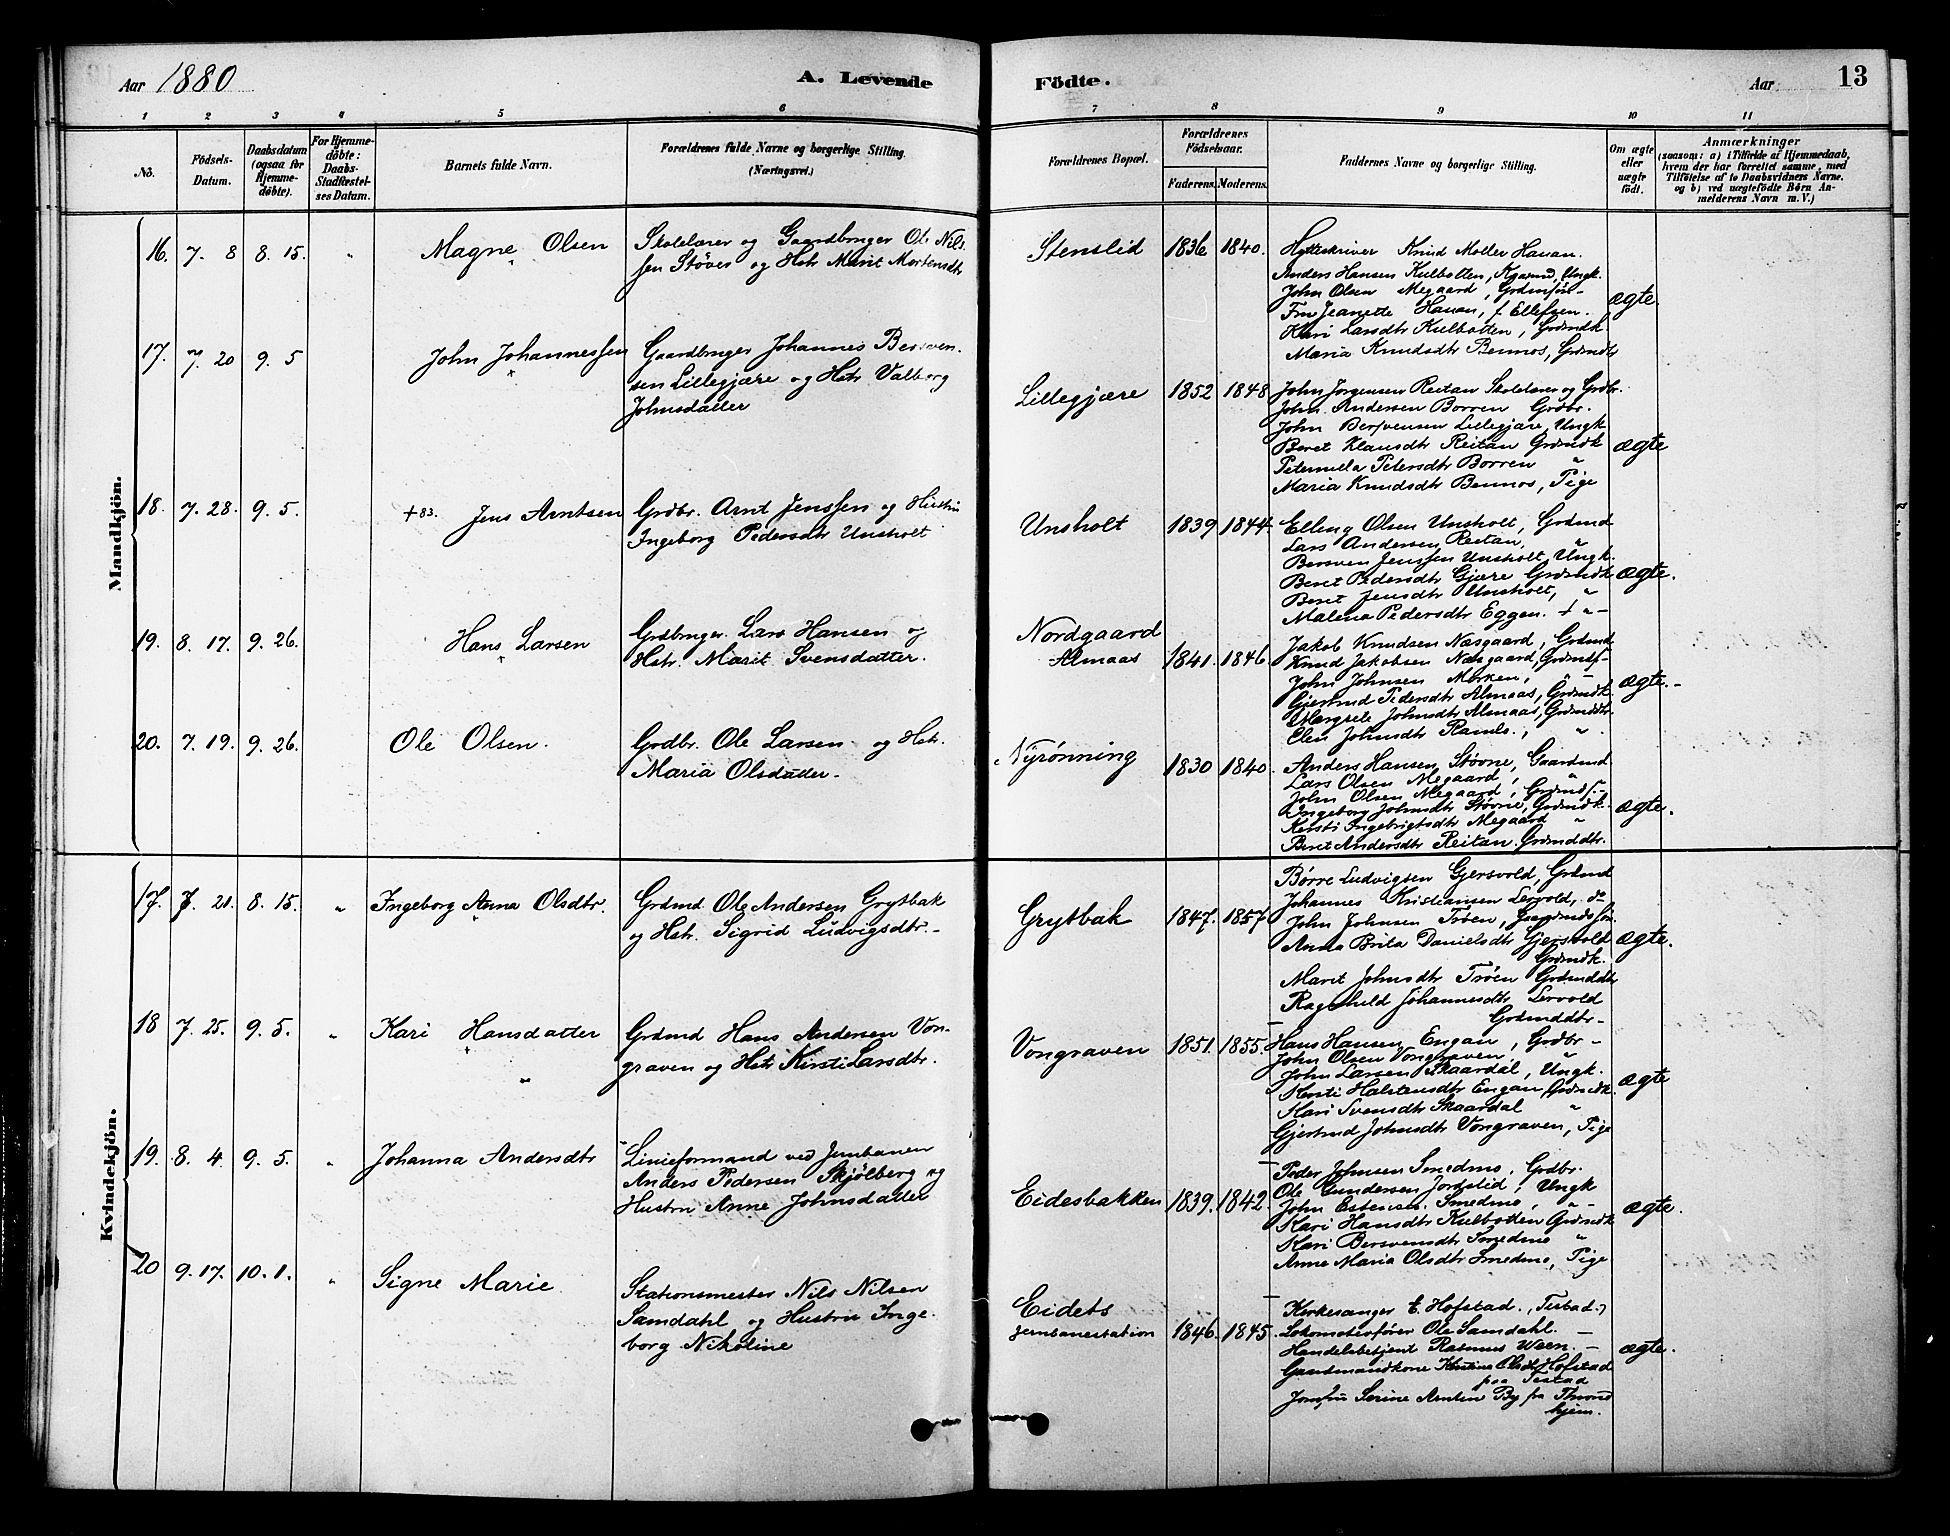 Aar 1880
A. Levende
Födte.
Aar
13
1 2 3 4 5 6 7 8 9 10 11
No.
Födsels-
Datum.
Daabsdatum
(ogsaa for
Hjemme-
døbte).
For Hjemme-
døbte:
Daabs-
Stadfæstel-
ses Datum.
Barnets fulde Navn.
Forældrenes fulde Navne og borgerlige Stilling.
(Næringsvei.)
Forældrenes Bopæl.
Forældrenes
Födselsaar.
Faderens. Moderens.
Faddernes Navne og borgerlige Stilling.
Om ægte
eller
uægte
født.
Anmærkninger
(saasom: a) i Tilfælde af Hjemmedaab,
hvem der har forrettet samme, med
Tilføielse af to Daabsvidners Navne.
og b) ved uægtefödte Børn An-
melderens Navn m. V.)
Mandkjön.
16. 7. 8 8. 15. " Magne Olsen
Skolelærer og Gaardbruger Ole Nils-
sen Støver og Hstr Marit Mortensdtr
Stenslid 1836 1840.
Hytteskriver Knud Moller Hauan.
Anders Hansen Kulbotten, Ungk.
John Olsen Megaard,
Fru Jeanette Hauan, f. Ellefsen.
Kari Larsdtr Kulbotten, Grdmdk.
Maria Knudsdtr Bennos, Grdmdtr
ægte.
17. 7. 20 9. 5 John Johannessen
Gaardbruger Johannes Bersven-
sen Lillegjære og Hstr Valborg
Johnsdatter
Lillegjære 1852 1848
John Jorgensen Reitan Skolelærer og Grdbr.
John Andersen Borren Grdbr.
John Bersvensen Lillegjære, Ungk
Beret Klausdtr Reitan Grdmdk
Petersdtr Borren "
Maria Knudsdtr Bennos, Pige
ægte
18. 7. 28. 9. 5. +83. Jens Arntsen
Grdbr. Arnt Jenssen og Hustru
Ingeborg Pedersdtr Unsholt
Unsholt 1839 1844.
Elling Olsen Unsholt, Grdmd
Lars Andersen Reitan, "
Bersven Jenssen Unsholt, Ungk.
Beret Pedersdtr Gjære Grdmdk
Beret Jensdtr Unsholt, "
Malena Pedersdtr Eggen. + " -
ægte.
19. 8. 17. 9. 26. Hans Larsen
Grdbruger. Lars Hansen og
Hstr. Marit Svensdatter.
Nordgaard
Almaas 1841. 1846.
Jakob Knudsen Næsgaard, Grdmd
Knud Jakobsen Næsgaard,
John Johnsen Morken, " -
Gjertrud Pedersdtr Almaas, Grdmdk.
Margrete Johnsdtr Almaas, Grdmdtr.
Elen Johnsdtr Ramlo., "
ægte. -
20. 7. 19. 9. 26. Ole Olsen.
Grdbr. Ole Larsen og Hstr.
Maria Olsdatter.
Nyrønning 1830 1840.
Anders Hansen Støvne, Gaardmd
Lars Olsen Megaard, "
John Olsen Megaard,
Ingeborg Johnsdtr Støvne, Grdmdk.
Kirsti Ingebrigtsdtr Megaard "
Beret Andersdtr Reitan. Grdmddtr.
ægte.
Kvindekjön.
17. 7. 21. 8. 15. " Ingeborg Anna Olsdtr.
Grdmd Ole Andersen Grytbak
og Hstr. Sigrid Ludvigsdtr. -
Grytbak 1847. 1857
Børre Ludvigsen Gjersvold, Grdmd
Johannes Kristiansen Lervold, do
John Johnsen Trøen,
Anna Brita Danielsdtr Gjersvold
Grdmdk.
Marit Johnsdtr Trøen Grdmddtr
Ragnhild Johannesdtr Lervold
Grdmddtr -
ægte.
18 7. 25. 9. 5. " Kari Hansdatter
Grdmd Hans Andersen Von-
graven og Hstr Kirsti Larsdtr.
Vongraven 1851. 1855.
Hans Hansen Engan, Grdbr -
John Olsen Vongraven, "
John Larsen Skaardal, Ungk.
Kirsti Halstensdtr Engan, Grdmdk.
Kari Svensdtr Skaardal "
Gjertrud Johnsdtr Vongraven, Pige
ægte
19. 8. 4. 9. 5. " Johanna Andersdtr
Linieformand ved Jernbanen
Anders Pedersen Skjølberg og
Hustru Anne Johnsdatter
Eidesbakken 1839. 1842.
Peder Johnsen Smedmo, Grdbr.
Ole Gundersen Jordslid, Ungk
John Estensen Smedmo, " -
Kari Hansdtr Kulbotten Grdmdk
Kari Bersvensdtr Smedmo "
Anne Maria Olsdtr Smedmo, Pige
ægte.
20 9. 17. 10. 1. " Signe Marie
Stationsmester Nils Nilsen
Samdahl og Hustru Inge-
borg Nikoline
Eidets
jernbanestation 1846. 1845.
Kirkesanger E. Hofstad.
Lokomotivfører Ole Samdahl. -
Handelsbetjent Rasmus Ween. -
Gaardmandkone Kristina Olsdtr Hofstad
paa
Jomfru Serine Arntsen By fra Thrond-
hjem.
ægte.